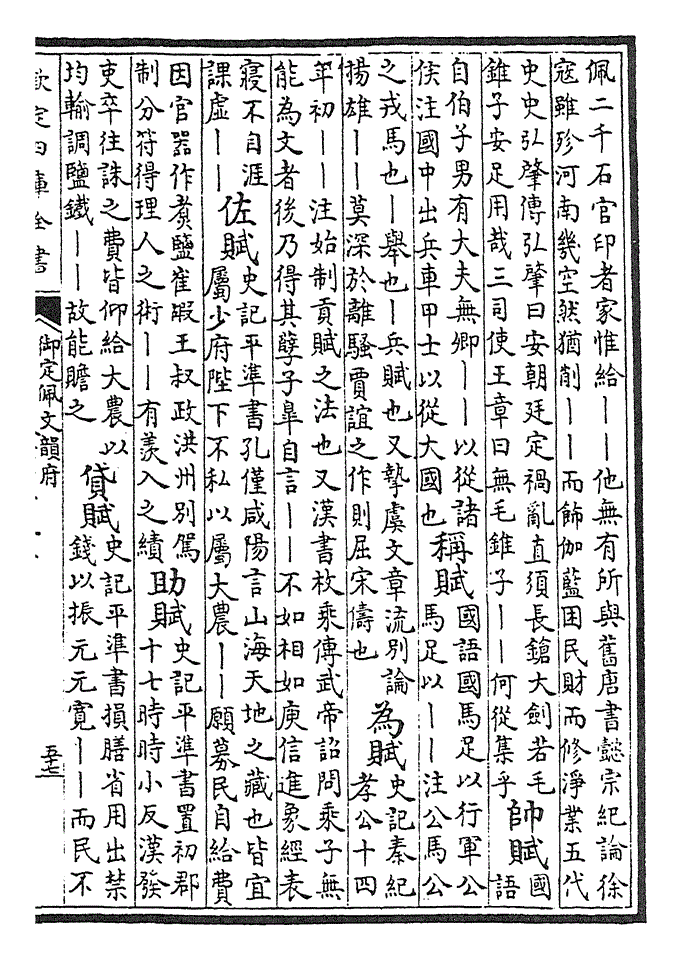 佩二千石官印者家惟給——他無有所與舊唐書懿宗紀論徐
寇雖殄河南幾空然猶削——而飾伽藍困民財而修淨業五代
史史弘肇傳弘肇曰安朝廷定禍亂直須長鎗大劍若毛
錐子安足用哉三司使王章曰無毛錐子——何從集乎
帥賦
國
語
自伯子男有大夫無卿——以從諸
侯注國中出兵車甲士以從大國也
稱賦
國語國馬足以行軍公
馬足以——注公馬公
之戎馬也—舉也—兵賦也又摯虞文章流別論
揚雄——莫深於離騷賈誼之作則屈宋儔也
為賦
史記秦紀
孝公十四
年初——注始制貢賦之法也又漢書枚乘傳武帝詔問乘子無
能為文者後乃得其孽子皋自言——不如相如庾信進象經表
寢不自涯
課虛——
佐賦
史記平準書孔僅咸陽言山海天地之藏也皆宜
屬少府陛下不私以屬大農——願募民自給費
因官器作煑鹽崔嘏王叔政洪州別駕
制分符得理人之術——有羨入之績
助賦
史記平準書置初郡
十七時時小反漢發
吏卒往誅之費皆仰給大農以
均輸調鹽鐵——故能贍之
貸賦
史記平準書損膳省用出禁
錢以振元元寬——而民不
欽定四庫全書
御定佩文韻府
五十七